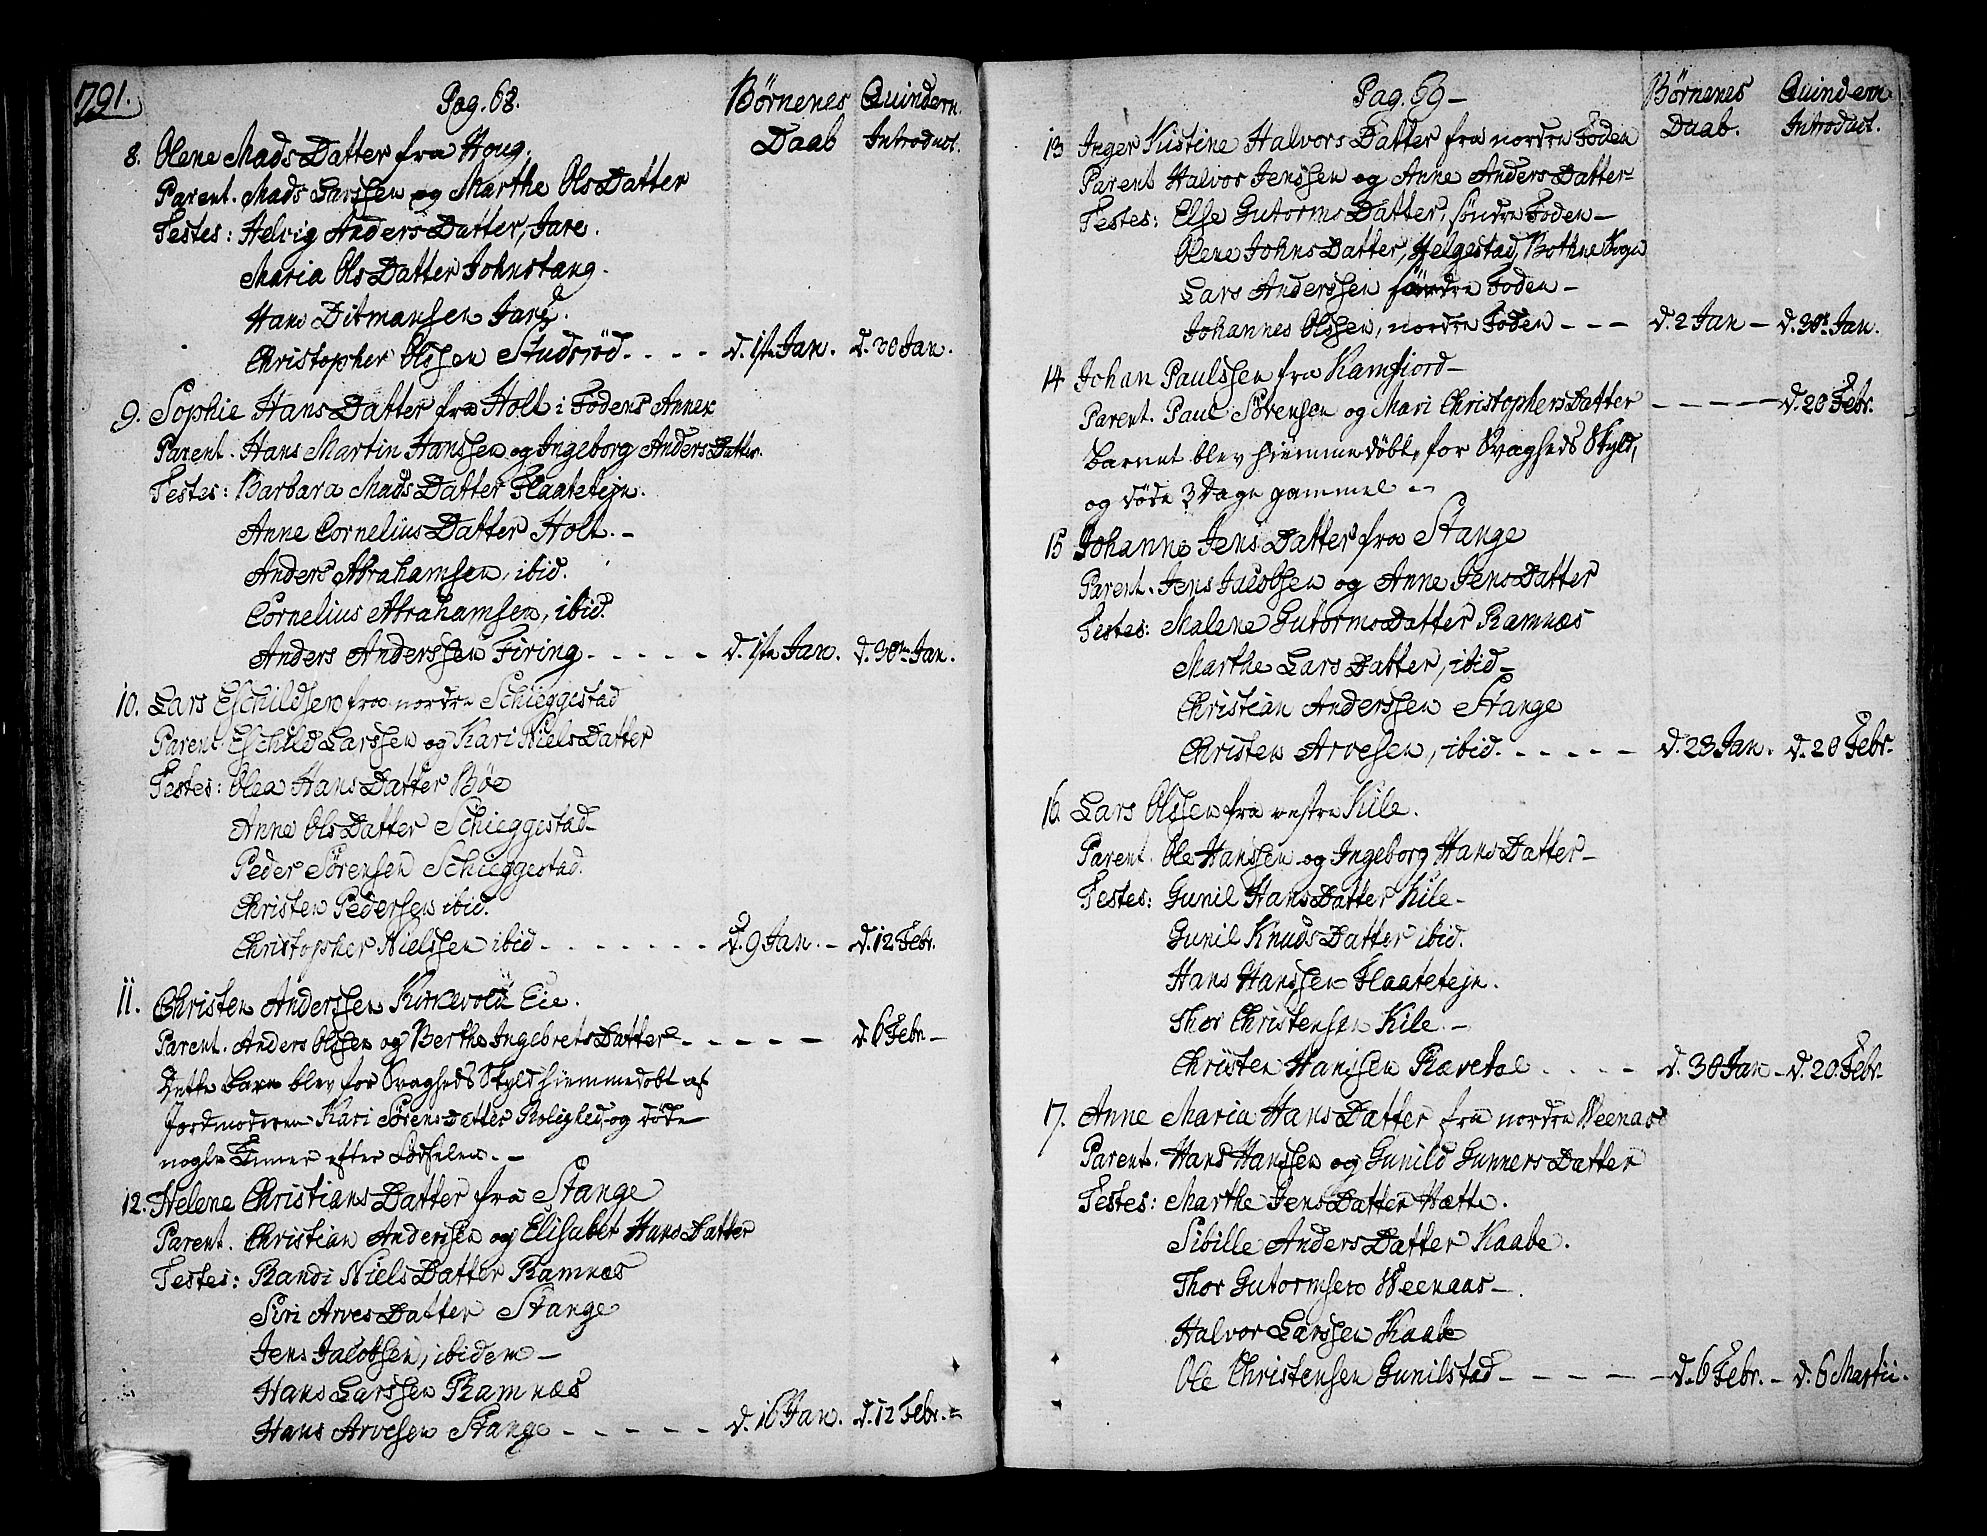 1791.
Pag. 68.
Børnenes Daab
Quindern. Introduct.
8. Olene Mads Datter fra Houg.
Parent. Mads Larssen og Marthe Ols Datter
Testes: Helvig Anders Datter, Jare.
Maria Ols Datter Johnstang.
Hans Ditmansen Jare.
Christopher Olssen Studsrød. - - - - d. 1ste Jan. d. 30 Jan.
9. Sophie Hans Datter fra Holt i Fodens Annex
Parent. Hans Martin Hanssen og Ingeborg Anders Datter.
Testes: Barbara Mads Datter Flaatetejn.
Anne Cornelius Datter Holt. -
Anders Abrahamsen, ibid.
Cornelius Abrahamsen, ibid.
Anders Anderssen Firing. - - - - - d. 1ste Jan. d. 30te Jan.
10. Lars Eschildsen fra nordre Schieggestad
Parent. Eschild Larssen og Kari Niels Datter
Testes: Olea Hans Datter Bøe
Anne Ols Datter Schieggestad
Peder Sørensen Schieggestad.
Christen Pedersen ibid.
Christopher Nielssen ibid. - - - - - - - d. 9 Jan. - d. 12 Febr.
11. Christen Anderssen Kirkevold Eie.
Parent. Anders Olssen og Berthe Ingebrets Datter - - - - - d. 6 Febr. -
Dette Barn blev for Svagheds Skyld hiemmedøbt af
Jordmoderen Kari Sørens Datter Rolighed, og døde
nogle Timer efter Fødselen. -
12. Helene Christians Datter fra Stange
Parent. Christian Anderssen og Elisabet Hans Datter
Testes: Randi Niels Datter Ramnæs
Siri Arves Datter Stange
Jens Jacobsen, ibidem -
Hans Larssen Ramnæs
Hans Arvesen Stange - - - - - d. 16 Jan. d. 12 Febr. -
Pag. 69 -
Børnenes Daab.
Quindern Introduct.
13 Inger Kistine Halvors Datter fra nordre Foden
Parent Halvor Jenssen og Anne Anders Datter -
Testes: Else Gutorms Datter, søndre Foden -
Olene Johns Datter, Helgestad, Bothne Sogn
Lars Anderssen søndre Foden -
Johannes Olssen, nordre Foden - - - d. 2 Jan - d. 30te Jan.
14 Johan Paulssen fra Kamfiord -
Parent. Paul Sørensen og Mari Christophers Datter - - - - d. 20 Febr.
Barnet blev hiemmedøbt, for Svagheds Skyld,
og døde 3 Dage gammel -
15 Johanne Jens Datter fra Stange
Parent. Jens Jacobsen og Anne Jens Datter
Testes: Malene Gutorms Datter Ramnæs
Marthe Lars Datter, ibid -
Christian Anderssen Stange
Christen Arvesen, ibid. - - - - - d. 23 Jan. d. 20 Febr.
16. Lars Olssen fra vestre Kile.
Parent. Ole Hanssen og Ingeborg Hans Datter -
Testes: Gunil Hans Datter Kile -
Gunil Knuds Datter ibid.
Hans Hanssen Flaatetejn.
Thor Christensen Kile. -
Christen Hanssen Rævetal - - - - d. 30 Jan - d. 20. Febr -
17. Anne Maria Hans Datter fra nordre Weenaas
Parent. Hans Hanssen og Gunild Gunners Datter
Testes: Marthe Jens Datter Hætte.
Sibille Anders Datter Kaabe.
Thor Gutormsen Weenaas -
Halvor Larssen Kaabe
Ole Christensen Gunilstad - - - - - d. 6 Febr. - d. 6 Martii.